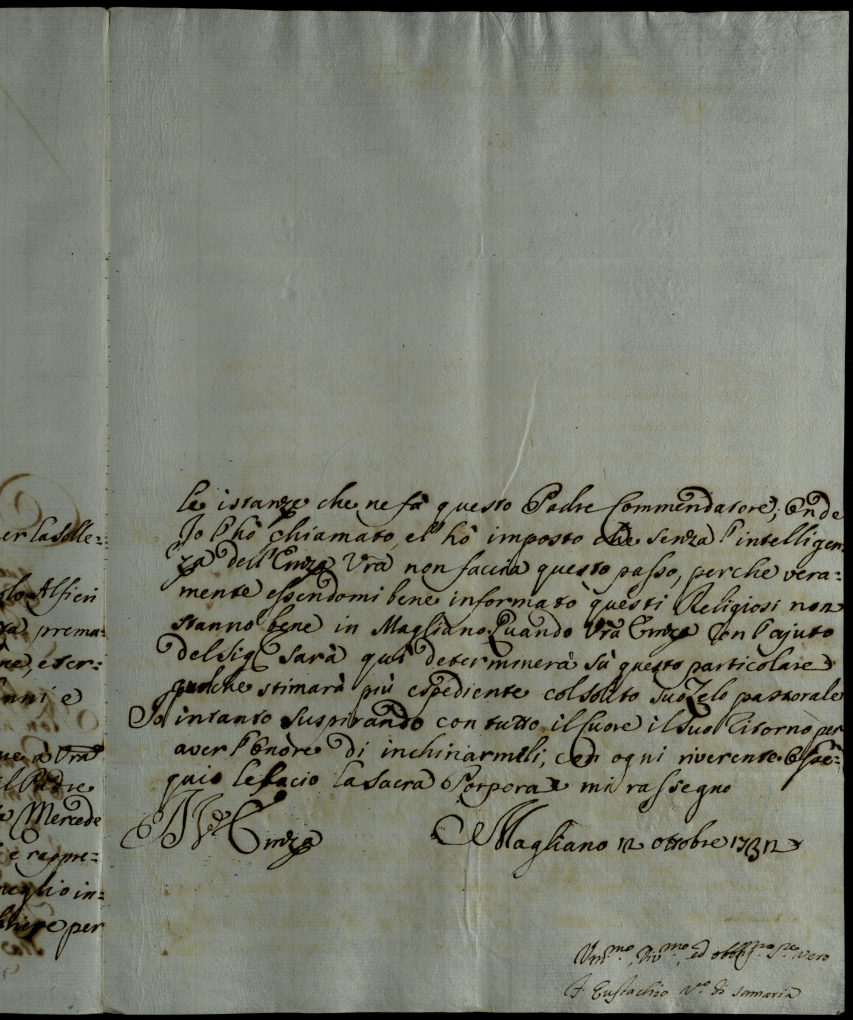 er la solle=
lo Alfieri
prema=
ne, e ser=
nni e
ue à Vra
il Padre
Mercede
e rappre=
meglio in=
per
le istanze che ne fà questo Padre Commendatore; Onde
Io l'hò chiamato, e l'hò imposto che senza l'intelligen=
za dell'Emza Vra non faccia questo passo, perche vera=
mente essendomi bene informato questi Religiosi non
stanno bene in Magliano. Quando Vra Emza con l'ajuto
del Sigr sarà quì determinerà sù questo particolare
quelche stimarà più espediente col solito suo Zelo pastorale
Io intanto suspirando con tutto il Cuore il suo Ritorno per
aver l'Onore di inchinarmeli; con ogni riverente Osse=
quio le bacio la Sacra Porpora e mi rassegno
Di V. Emza
Magliano 12 ottobre 1732
Ummo, Divmo, ed obblmo Sre vero
F. Eustachio Vo di Samaria